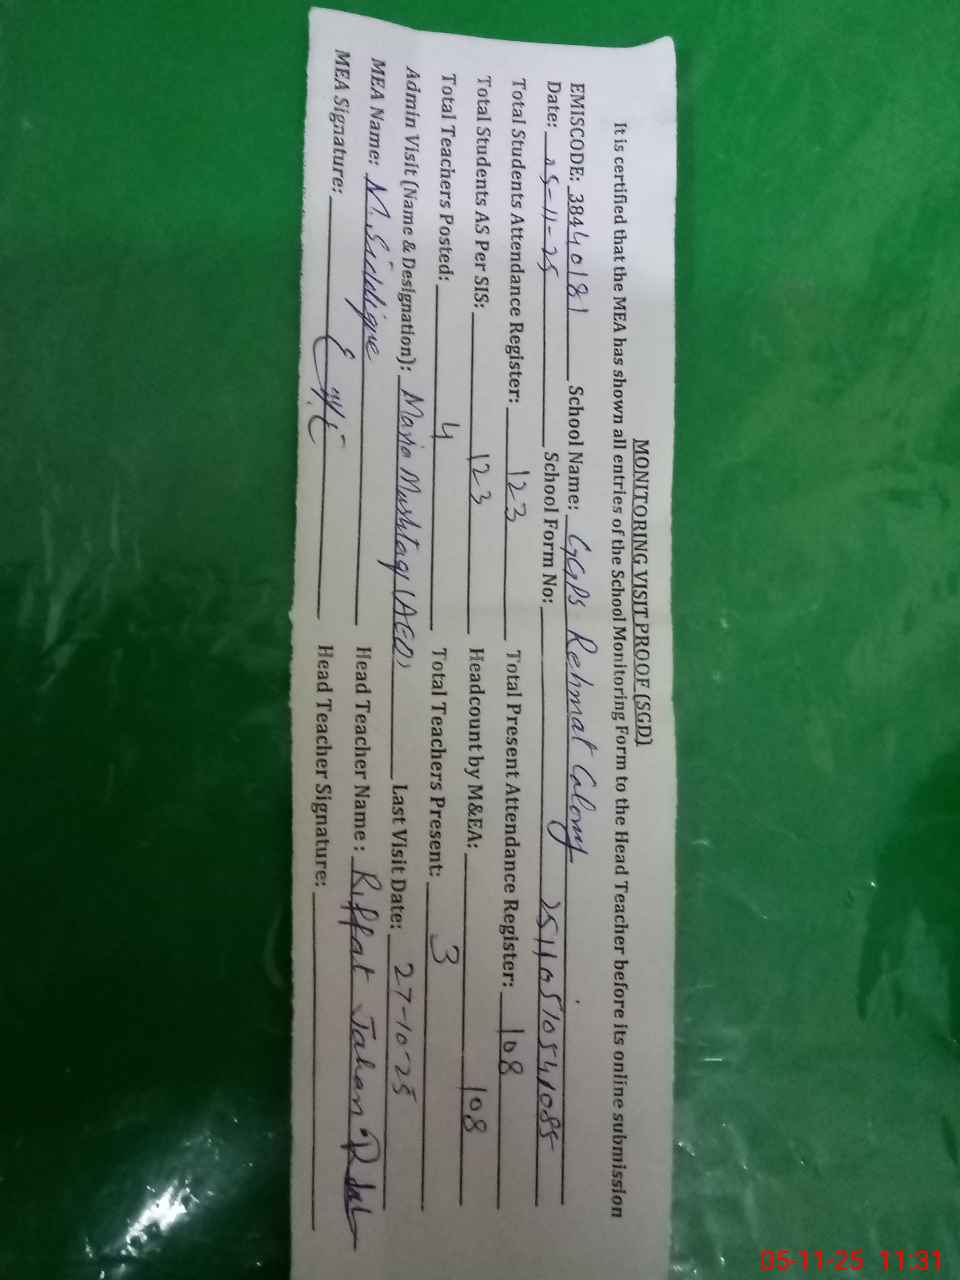 MONITORING VISIT PROOF (SGD)
It is certified that the MEA has shown all entries of the School Monitoring Form to the Head Teacher before its online submission
EMISCODE: 38440181 School Name: GGPS Rehmat Calony
Date: 05-11-25 School Form No: 25110510541085
Total Students Attendance Register: 123 Total Present Attendance Register: 108
Total Students AS Per SIS: 123 Headcount by M&EA: 108
Total Teachers Posted: 4 Total Teachers Present: 3
Admin Visit (Name & Designation): Maria Mushtaq (AEO) Last Visit Date: 27-10-25
MEA Name: M. Siddique Head Teacher Name: Riffat Jahan
MEA Signature: Head Teacher Signature:
05-11-25 11:31